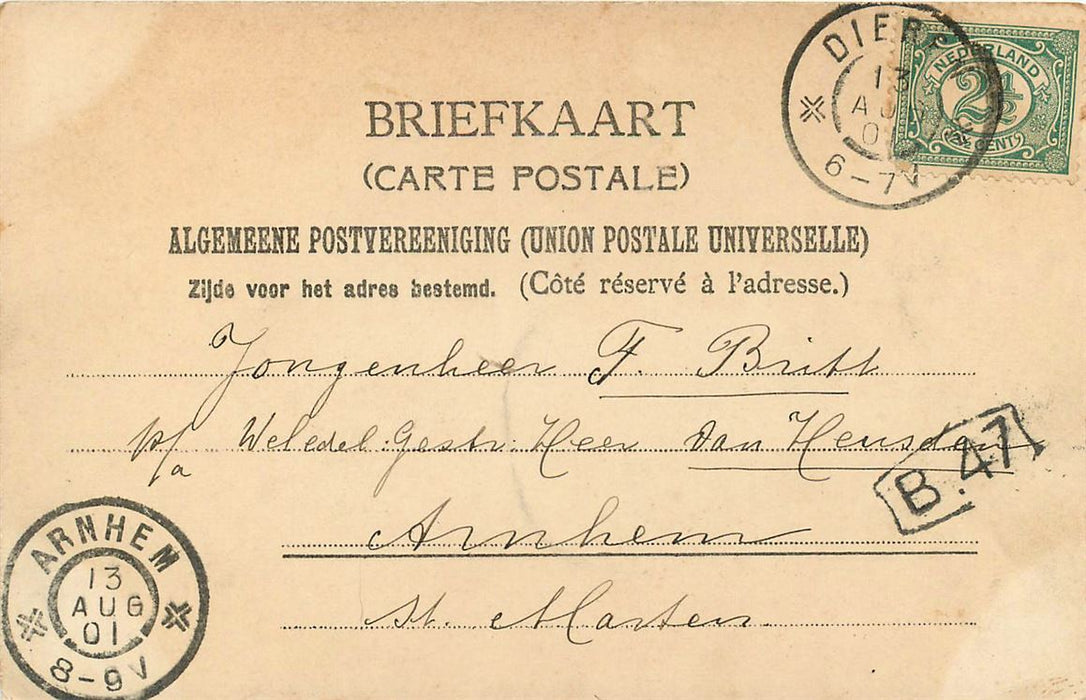 BRIEFKAART
(CARTE POSTALE)
ALGEMEENE POSTVEREENIGING (UNION POSTALE UNIVERSELLE)
Zijde voor het adres bestemd. (Côté réservé à l'adresse.)
Jongenheer F. Britt
p/a Weledel. Gestr. Heer van Heusden
Arnhem
St. Marten
DIEREN
13
AUG
01
6-7V
NEDERLAND
2½
CENT
B.47
ARNHEM
13
AUG
01
8-9V